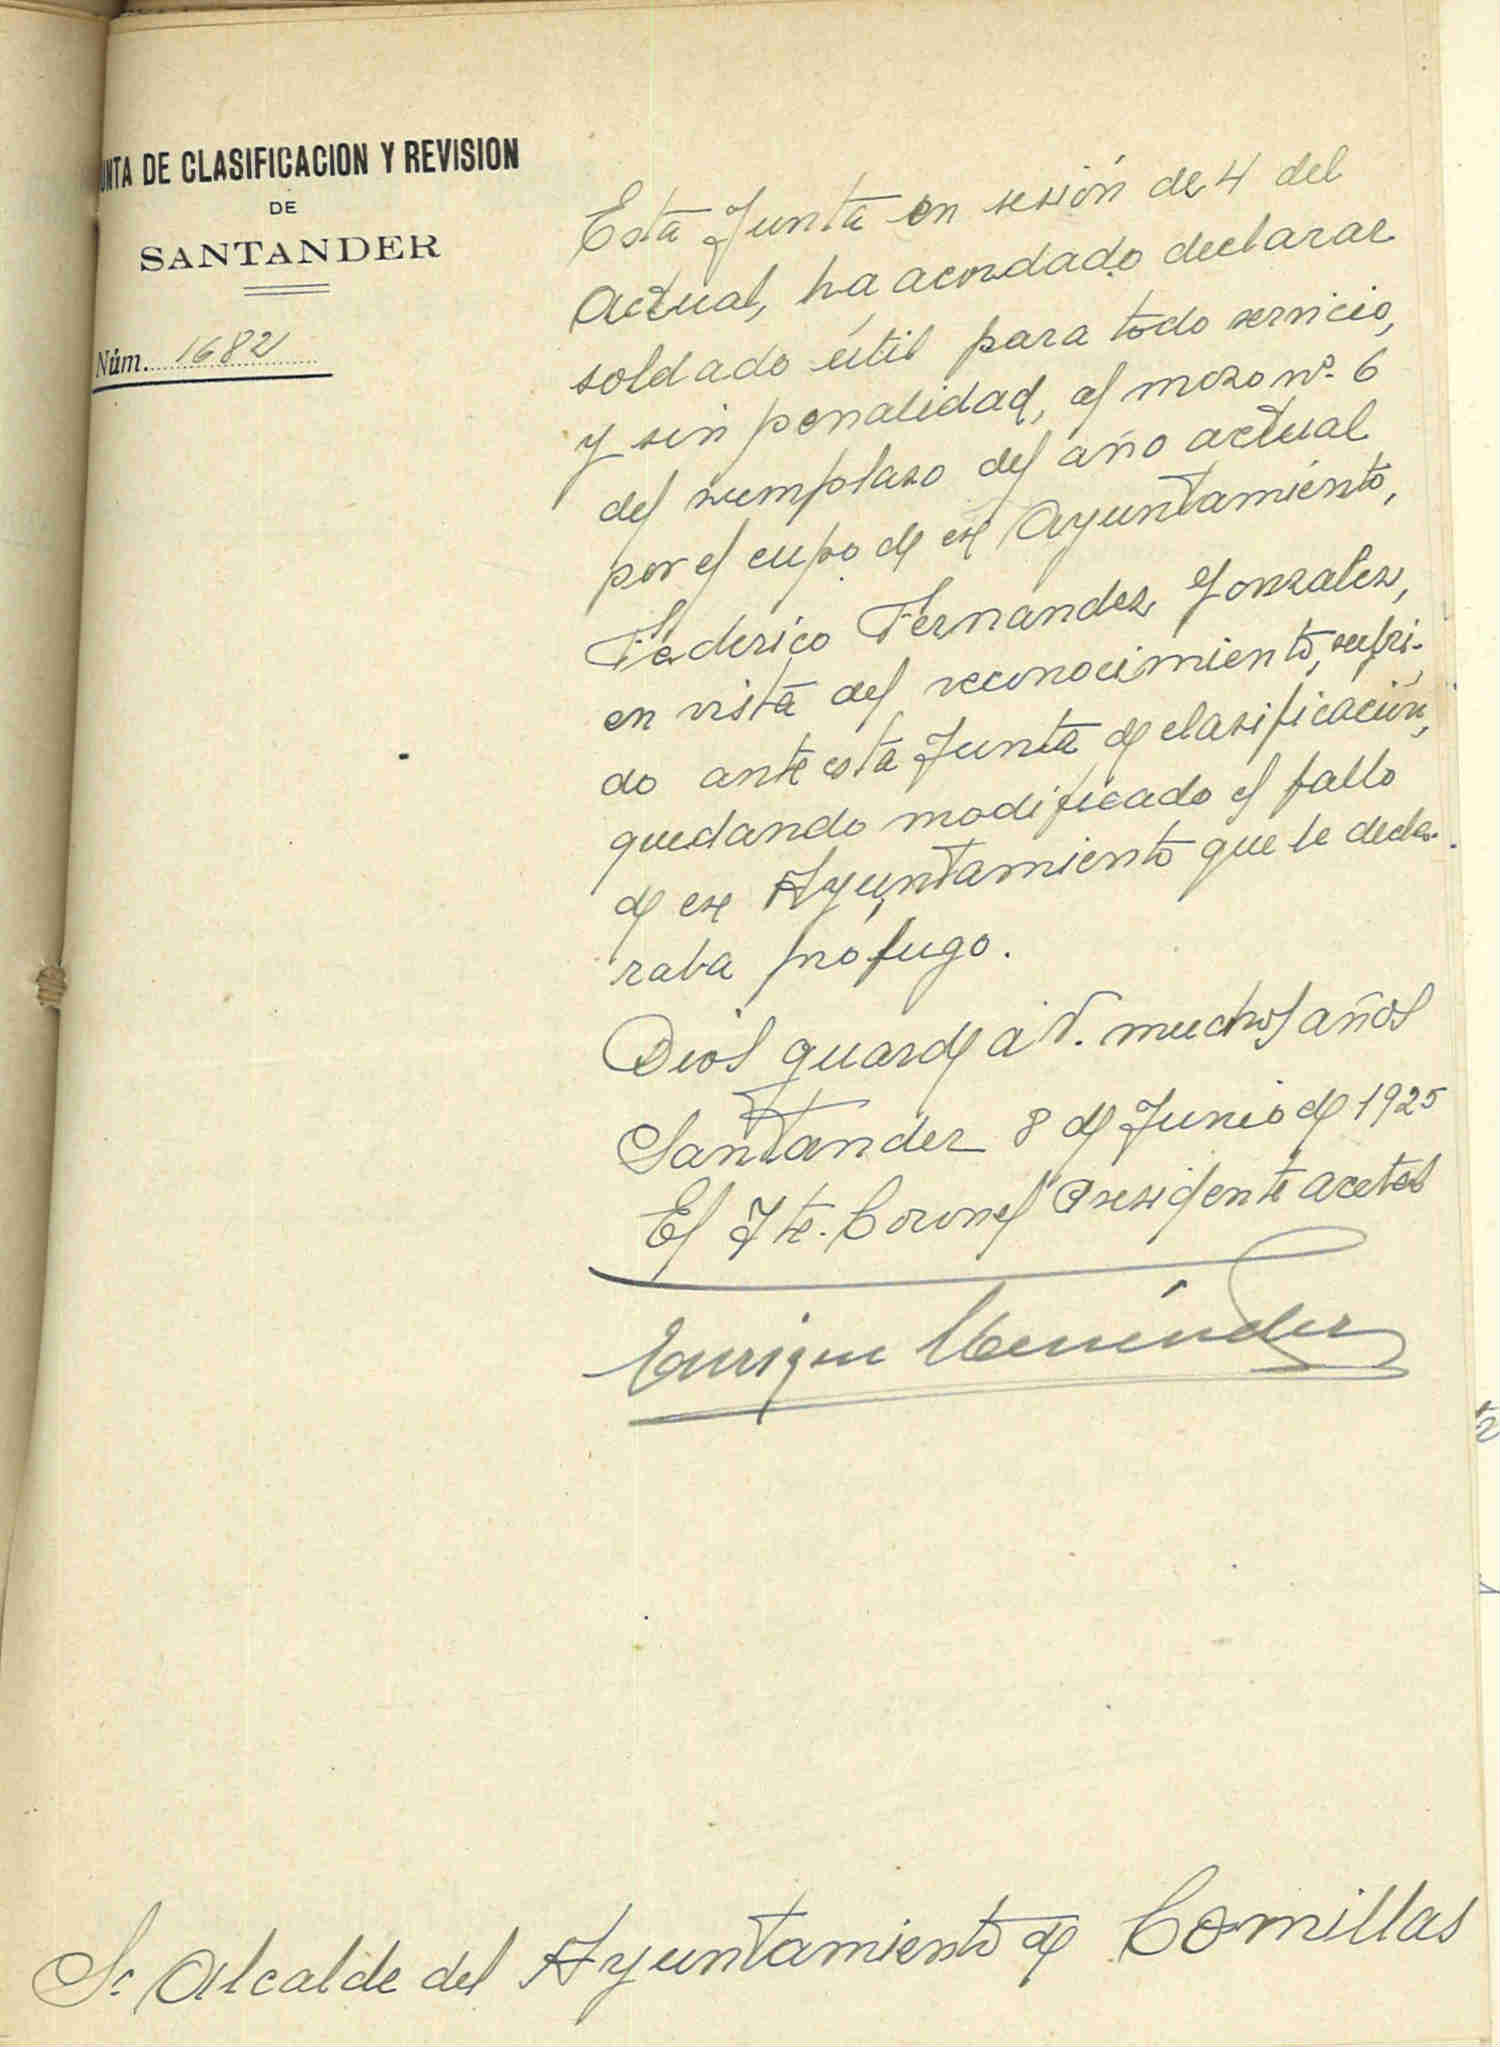 UNTA DE CLASIFICACION Y REVISION
DE
SANTANDER
Núm. 1682
Esta Junta en sesión de 4 del
actual, ha acordado declarar
soldado útil para todo servicio,
y sin penalidad, al mozo nº 6
del remplazo del año actual
por el cupo de ese Ayuntamiento,
Federico Fernandez Gonzalez,
en vista del reconocimiento, sufri-
do ante esta Junta de clasificación,
quedando modificado el fallo
de ese Ayuntamiento que le decla-
raba prófugo.
Dios guarde a V. muchos años
Santander 8 de Junio de 1925
El Tte. Coronel Presidente acctal
Enrique Menéndez
Sr Alcalde del Ayuntamiento de Comillas